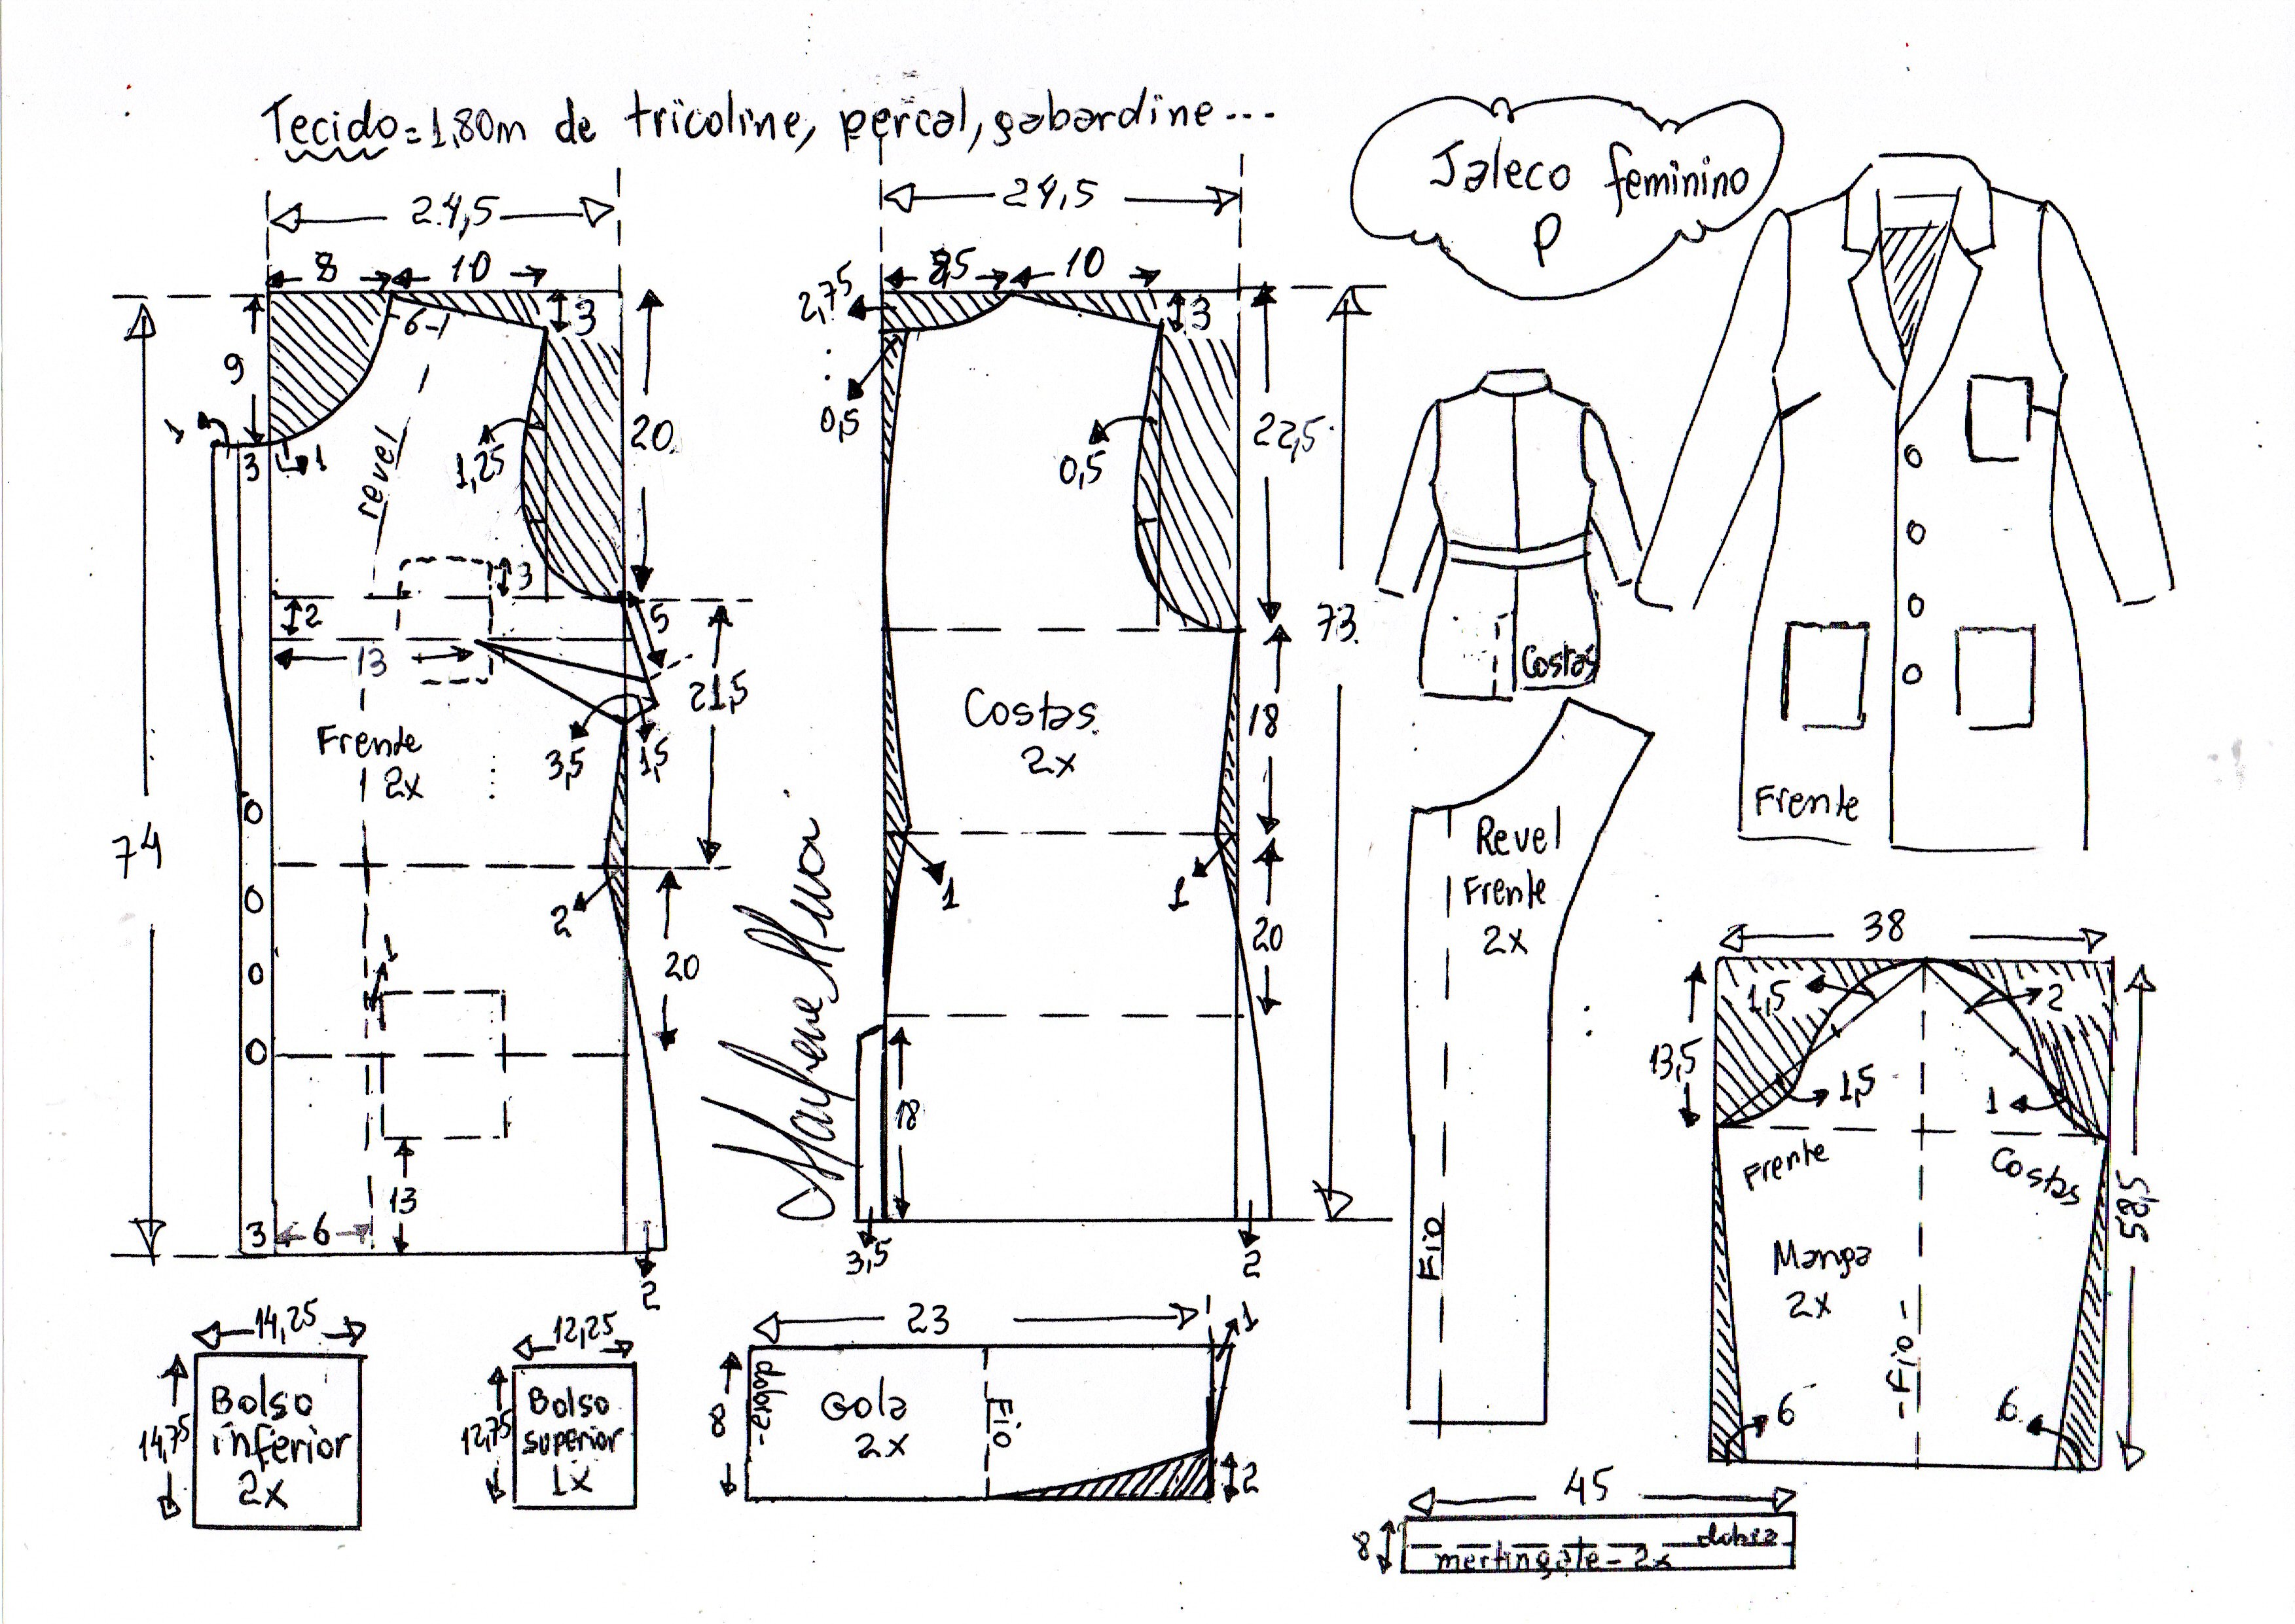 Tecido = 1,80m de tricoline, percal, gabardine...
Jaleco feminino
P
24,5
8
10
3
9
6
1
3
1
revel
1,25
20
3
2
5
13
21,5
3,5
1,5
Frente
2x
74
2
20
1
13
3
6
2
24,5
8,5
10
3
2,75
0,5
0,5
22,5
73
Costas
2x
18
1
1
20
18
3,5
2
Marlene Mukai
Costas
Frente
Revel
Frente
2x
Fio
38
1,5
2
13,5
1,5
1
Frente
Costas
58,5
Manga
2x
Fio
6
6
14,25
14,75
Bolso
inferior
2x
12,25
12,75
Bolso
superior
1x
23
1
8
dobra
Gola
2x
Fio
2
45
8
dobra
mertingate - 2x